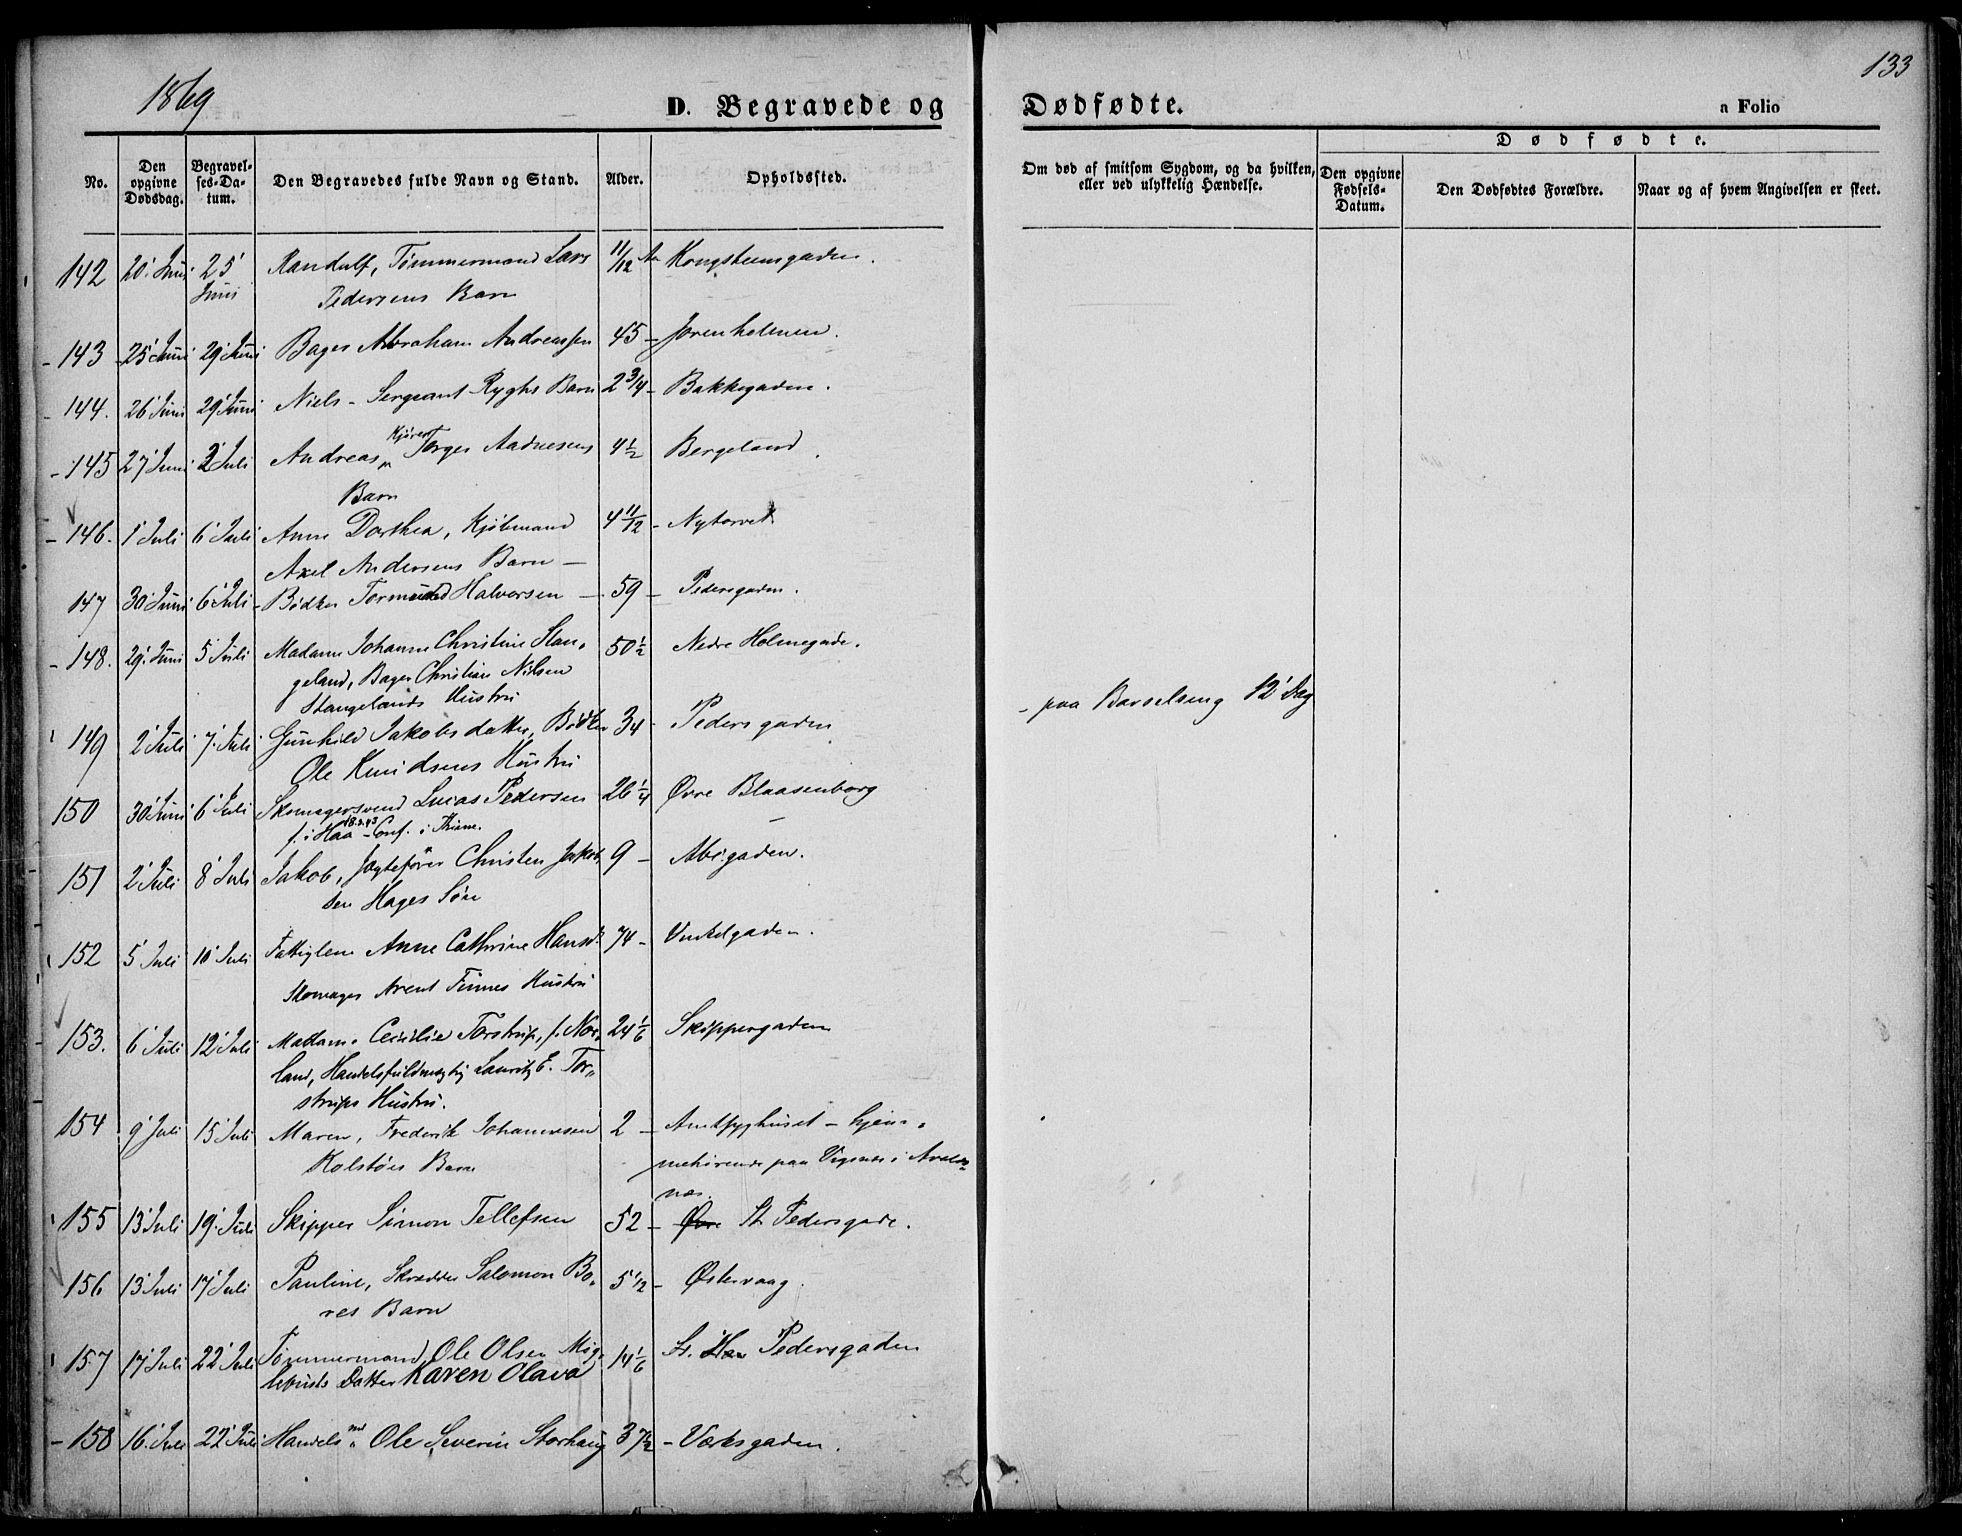 1869
133
D. Begravede og Dødfødte.
n Folio
Dødfødte.
No.
Den opgivne Dødsdag.
Begravelses-Datum.
Den Begravedes fulde Navn og Stand.
Alder.
Opholdssted.
Om død af smitsom Sygdom, og da hvilken, eller ved ulykkelig Hændelse.
Den opgivne Fødsels-Datum.
Den Dødfødtes Forældre.
Naar og af hvem Angivelsen er skeet.
142 20' Juni 25' Juni Randulf, Tømmermand Lars 11/12 Kongsteensgaden.
Pedersens Barn
143 25' Juni 29' Juni Bager Abraham Andreassen 45 - Jorenholmen.
144. 26' Juni 29' Juni Niels - Sergeant Ryghs Barn 2 3/4 - Bakkegaden.
145 27' Juni 2' Juli Andreas, Kjører Torger Aadnesens 4 1/2 Bergeland.
Barn
146. 1' Juli 6' Juli Anne Dorthea, Kjøbmand 4 11/12 - Nytorvet
Axel Andersens Barn -
147 30' Juni 6' Juli Bødker Tormund Halvorsen - 59 - Pedersgaden.
148. 29' Juni 5' Juli Madame Johanne Christine Stan- 50 1/2 Nedre Holmegade.
geland, Bager Christian Nilsen
Stangelands Hustru
149 2' Juli 7' Juli Gunhild Jakobsdatter, Bødker 34 - Pedersgaden - paa Barselseng 12' Dag
Ole Knudsens Hustru
150 30' Juni 6' Juli Skomagersvend Lucas Pedersen 26 1/4 Øvre Blaasenborg
f. i Haa 18.3.43 - Conf. i Thime.
151 2' Juli 8' Juli Jakob, Jagtefører Christen Jakob- 9 - Abigaden.
sen Hages Søn
152 5' Juli 10' Juli Fattiglem Anne Cathrine Hansd. 74 - Vinkelgaden.
Skomager Arent Finnes Hustru
153. 6' Juli 12' Juli Madame Cecilie Torstrup, f. Nor- 24 1/6 Skippergaden
land, Handelsfuldmægtig Lauritz E. Tor-
strups Hustru.
154 9' Juli 15' Juli Maren, Frederik Johannesen 2 - Amtsyghuset - hjem-
Kolstøes Barn mehørende paa Vigsnes i Avalds-
næs.
155 13' Juli 19' Juli Skipper Simon Tellefsen 52 - Øvre St. Pedersgade.
156 13' Juli 17' Juli Pauline, Skrædder Salomon Bo- 5 1/2 - Østervaag.
res Barn
157 17' Juli 22' Juli Tømmermand Ole Olsen Mig- 14 1/6 St. Pedersgaden
lebusts Datter Karen Olava
158 16' Juli 22' Juli Handelsmd. Ole Severin Storhaug 37 1/2 - Værksgaden.